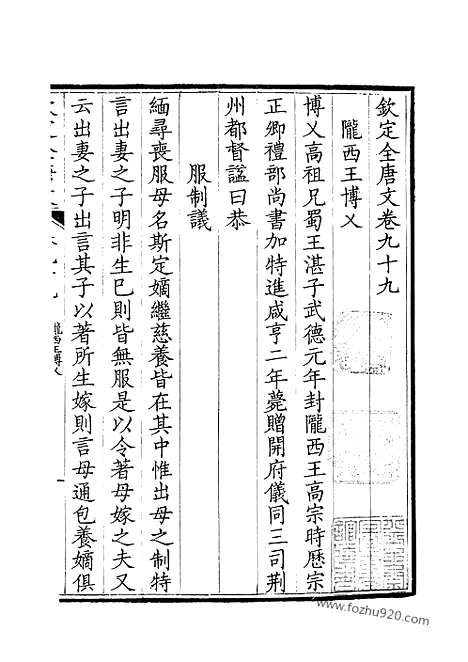 欽定全唐文卷九十九
隴西王博乂
博乂高祖兄蜀王湛子武德元年封隴西王高宗時歷宗
正卿禮部尚書加特進咸亨二年薨贈開府儀同三司荆
州都督諡曰恭
服制議
緬尋喪服母名斯定嫡繼慈養皆在其中惟出母之制特
言出妻之子明非生已則皆無服是以令著母嫁之夫又
云出妻之子出言其子以著所生嫁則言母通包養嫡俱
隴西王博乂
一
www.fozhu920.com